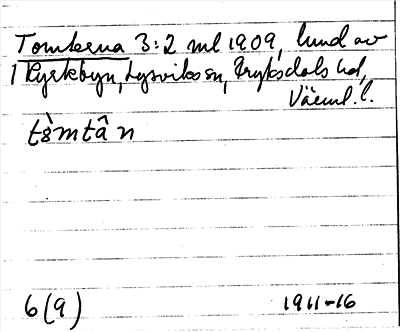 Tomterna 3:2 ml 1909, lund av
1 Kyrkbyn, Lysviks sn, Fryksdals hd,
Värml. l.
tòmtân
6(9) 1911-16